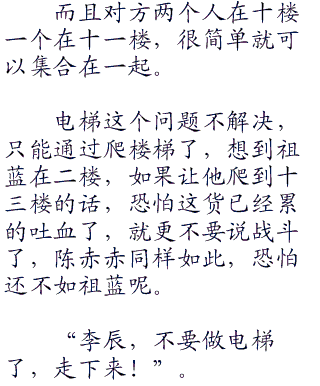 而且对方两个人在十楼
一个在十一楼，很简单就可
以集合在一起。
电梯这个问题不解决，
只能通过爬楼梯了，想到祖
蓝在二楼，如果让他爬到十
三楼的话，恐怕这货已经累
的吐血了，就更不要说战斗
了，陈赤赤同样如此，恐怕
还不如祖蓝呢。
“李辰，不要做电梯
了，走下来！”。